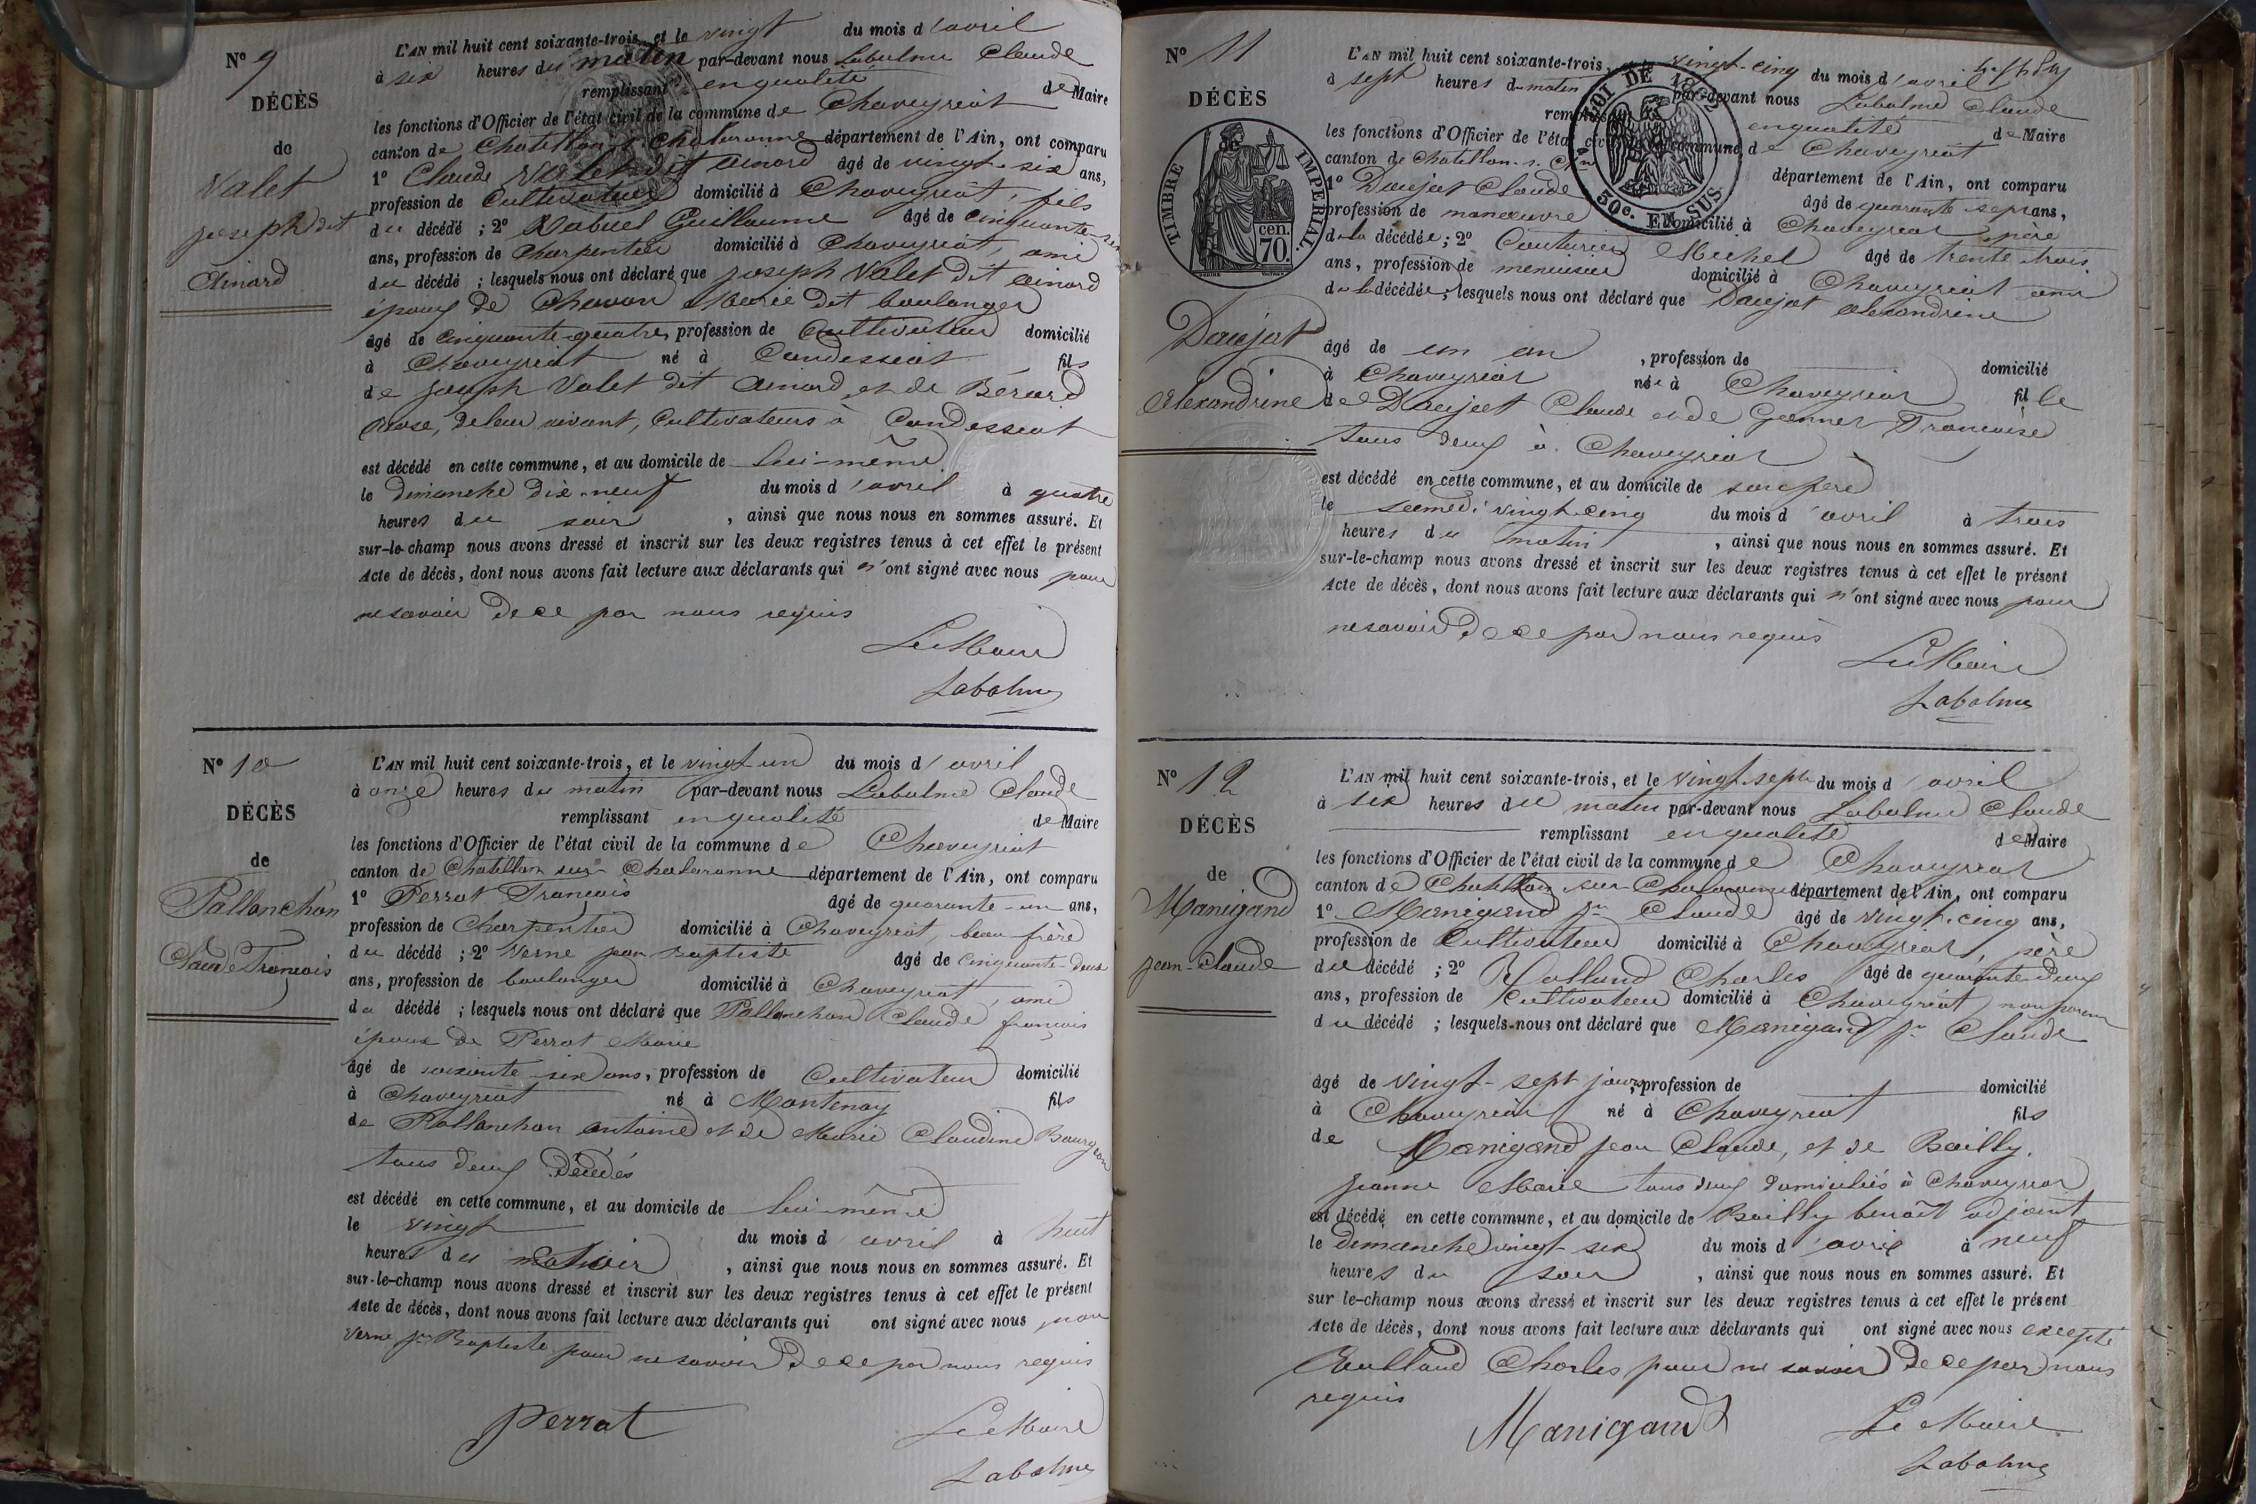 N° 9
DÉCÈS
de
Valet
joseph dit
Ainard
L'AN mil huit cent soixante-trois, et le vingt du mois d'avril
à six heures du matin par-devant nous Labalme Claude
remplissant en qualité de Maire
les fonctions d'Officier de l'état civil de la commune de Chaveyriat
canton de Chatillon s Chalaronne département de l'Ain, ont comparu
1° Claude Valet dit Ainard âgé de vingt-six ans,
profession de Cultivateur domicilié à Chaveyriat, fils
du décédé ; 2° Vabuel Guillaume âgé de cinquante-six
ans, profession de Charpentier domicilié à Chaveyriat, ami
du décédé ; lesquels nous ont déclaré que joseph Valet dit Ainard
époux de Chavon Marie dit boulanger
âgé de cinquante-quatre, profession de Cultivateur domicilié
à Chaveyriat né à Condessiat fils
de joseph Valet dit Ainard et de Bérard
Rose, de leur vivant, Cultivateurs à Condessiat
est décédé en cette commune, et au domicile de lui-même
le dimanche dix-neuf du mois d'avril à quatre
heures du soir, ainsi que nous nous en sommes assuré. Et
sur-le-champ nous avons dressé et inscrit sur les deux registres tenus à cet effet le présent
Acte de décès, dont nous avons fait lecture aux déclarants qui n'ont signé avec nous pour
ne savoir de ce par nous requis
Le Maire
Labalme
N° 10
DÉCÈS
de
Pallanchon
Claude François
L'AN mil huit cent soixante-trois, et le vingt un du mois d'avril
à onze heures du matin par-devant nous Labalme Claude
remplissant en qualité de Maire
les fonctions d'Officier de l'état civil de la commune de Chaveyriat
canton de Chatillon sur Chalaronne département de l'Ain, ont comparu
1° Perrat Francois âgé de quarante-un ans,
profession de Charpentier domicilié à Chaveyriat, beau frère
du décédé ; 2° Verne jean Baptiste âgé de cinquante-deux
ans, profession de boulanger domicilié à Chaveyriat, ami
du décédé ; lesquels nous ont déclaré que Pallanchon Claude françois
époux de Perrat Marie
âgé de soixante-six ans, profession de Cultivateur domicilié
à Chaveyriat né à Montenay fils
de Pallanchon antoine et de Marie Claudine Bourgeon
tous deux Décédés
est décédé en cette commune, et au domicile de lui-même
le vingt du mois d'avril à huit
heures du soir, ainsi que nous nous en sommes assuré. Et
sur-le-champ nous avons dressé et inscrit sur les deux registres tenus à cet effet le présent
Acte de décès, dont nous avons fait lecture aux déclarants qui ont signé avec nous non
Verne jn Baptiste pour ne savoir de ce par nous requis
Perrat
Le Maire
Labalme
N° 11
DÉCÈS
TIMBRE IMPERIAL.
70 cen.
LOI DE 1862
50c. EN SUS
Daujat
Alexandrine
L'AN mil huit cent soixante-trois, vingt-cinq du mois d'avril
à sept heures du matin par-devant nous Labalme Claude
remplissant en qualité de Maire
les fonctions d'Officier de l'état civil de la commune de Chaveyriat
canton de Chatillon-s-Chne département de l'Ain, ont comparu
1° Daujat Claude âgé de quarante sept ans,
profession de manœuvre domicilié à Chaveyriat père
de la décédée ; 2° Couturier Michel âgé de trente trois
ans, profession de menuisier domicilié à Chaveyriat ami
de la décédée ; lesquels nous ont déclaré que Daujat Alexandrine
âgé de un an, profession de domicilié
à Chaveyriat née à Chaveyriat fille
de Daujat Claude et de Gonnet Francoise
tous deux à Chaveyriat
est décédé en cette commune, et au domicile de son père
le samedi vingt-cinq du mois d'avril à trois
heures du matin, ainsi que nous nous en sommes assuré. Et
sur-le-champ nous avons dressé et inscrit sur les deux registres tenus à cet effet le présent
Acte de décès, dont nous avons fait lecture aux déclarants qui n'ont signé avec nous pour
ne savoir de ce par nous requis
Le Maire
Labalme
N° 12
DÉCÈS
de
Manigand
jean-Claude
L'AN mil huit cent soixante-trois, et le vingt-sept du mois d'avril
à six heures du matin par-devant nous Labalme Claude
remplissant en qualité de Maire
les fonctions d'Officier de l'état civil de la commune de Chaveyriat
canton de Chatillon sur Chalaronne département de l'Ain, ont comparu
1° Manigand jn Claude âgé de vingt-cinq ans,
profession de Cultivateur domicilié à Chaveyriat, père
du décédé ; 2° Rolland Charles âgé de quarante deux
ans, profession de Cultivateur domicilié à Chaveyriat, non parent
du décédé ; lesquels nous ont déclaré que Manigand jn Claude
âgé de vingt-sept jours, profession de domicilié
à Chaveyriat né à Chaveyriat fils
de Manigand jean Claude, et de Bailly.
jeanne Marie tous deux domiciliés à Chaveyriat
est décédé en cette commune, et au domicile de Bailly benoît adjoint
le dimanche vingt-six du mois d'avril à neuf
heures du soir, ainsi que nous nous en sommes assuré. Et
sur-le-champ nous avons dressé et inscrit sur les deux registres tenus à cet effet le présent
Acte de décès, dont nous avons fait lecture aux déclarants qui ont signé avec nous excepté
Rolland Charles pour ne savoir de ce par nous
requis
Manigand
Le Maire
Labalme